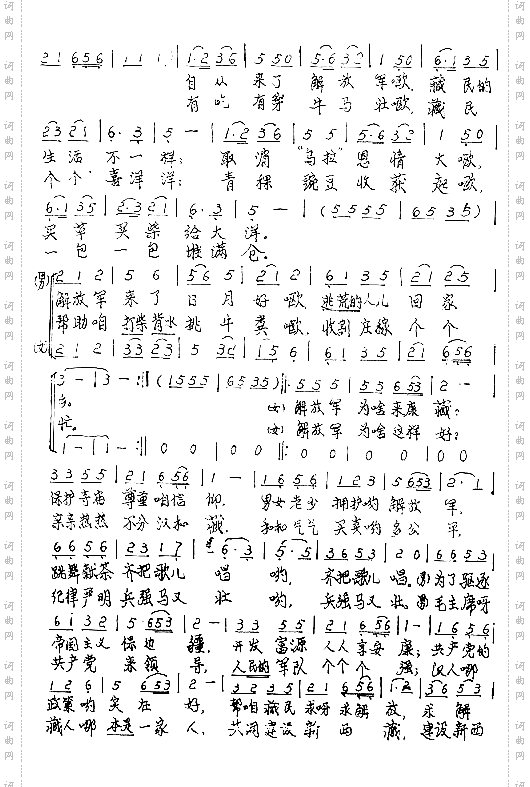 2 1 6 5 6 | 1 1 1 | 1·2 3 6 | 5 5 0 | 5·6 3 2 | 1 5 0 | 6·1 3 5 |
自从 来了 解放 军呦, 藏民的
有吃 有穿 牛马 壮呦, 藏民
2 3 2 1 | 6· 3 | 5 - | 1·2 3 6 | 5 5 | 5·6 3 2 | 1 5 0 |
生活 不一样; 取消 "乌拉" 恩情 大呦,
个个 喜洋洋; 青稞 豌豆 收获 起呦,
6·1 3 5 | 2 3 2 1 | 6· 3 | 5 - | (1 5 5 5 5 | 6 5 3 5) |
买草 买柴 给大洋。
一包 一包 堆满仓。
(男) 2 1 2 | 5 6 | 5 6 5 | 2 1 2 | 6 1 3 5 | 2 1 2 5 |
解放军 来了 日月 好呦, 逃荒的人儿 回家
帮助咱 打柴背水 挑牛粪呦, 收割庄稼 个个
(女) 2 1 2 | 3 3 2 3 | 5 3 | 1 5 6 | 6 1 3 5 | 2 1 6 5 6 |
3 - | 3 - :|| (1 5 5 5 | 6 5 3 5) ||: 5 5 5 | 5 5 6 5 3 | 2 - |
乡。 (女) 解放军 为啥来康藏?
忙。 (女) 解放军 为啥这样好?
1 - | 1 - :|| 0 0 | 0 0 ||: 0 0 | 0 0 | 0 0 |
3 3 5 5 | 2 1 6 5 6 | 1 - | 1 6 5 6 | 1 2 3 | 5 6 5 3 | 2· 1 |
保护寺庙 尊重咱信仰, 男女老少 拥护哟 解放军,
亲亲热热 不分汉和藏, 和和气气 买卖哟 多公平,
6 6 5 6 | 2 3 1 7 | 6· 3 | 5· 5 | 3 6 5 3 | 2 0 | 6 6 5 3 |
跳舞献茶 齐把歌儿 唱 哟, 齐把歌儿 唱。(男) 为了驱逐
纪律严明 兵强马又 壮 哟, 兵强马又 壮。(男) 毛主席呀
6 1 3 2 | 1 5 6 5 3 | 2 - | 3 3 5 5 | 2 1 6 5 6 | 1 - | 1 6 5 6 |
帝国主义 保边 疆, 开发富源 人人享安 康; 共产党的
共产党 来领 导, 人民的军队 个个 强; 汉人哪
1 2 6 | 5 6 5 3 | 2 - | 3 2 3 5 | 2 1 6 5 6 | 1· 2 | 3 6 5 3 |
政策哟 实在 好, 帮咱藏民 求呀求解 放, 求解
藏人哪 本是一家 人, 共同建设 新西 藏, 建设新西
词曲网